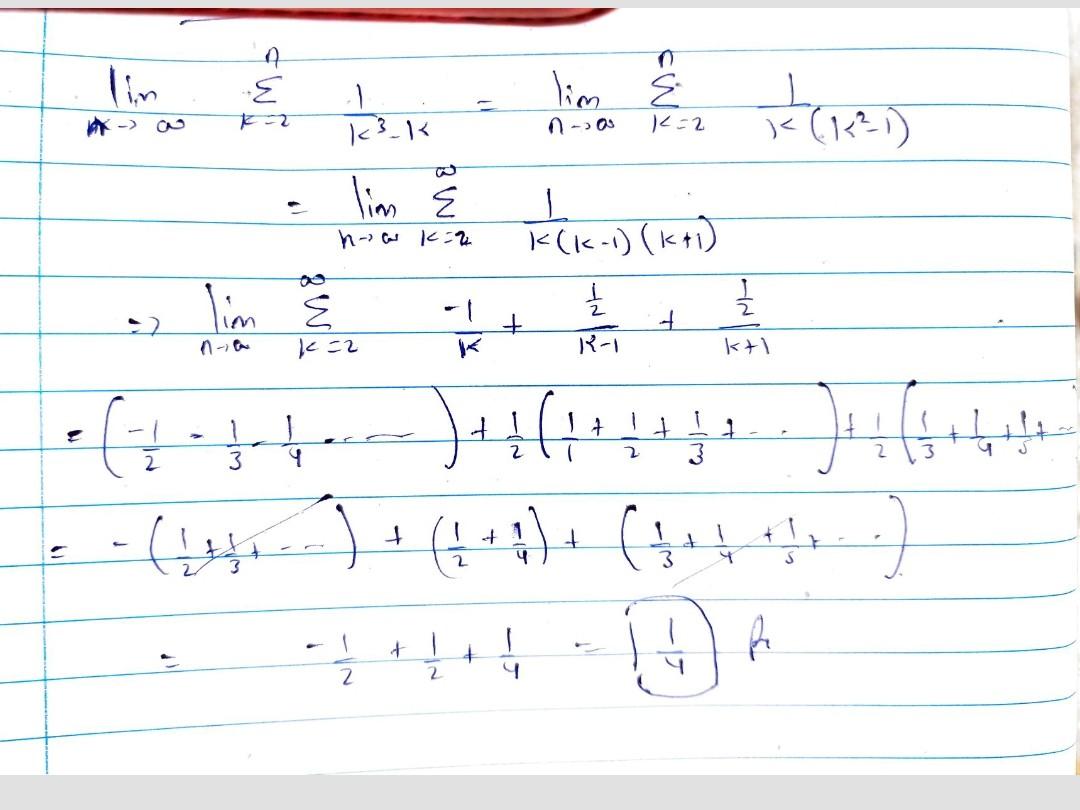 lim n→∞ Σ k=2 n 1/(k³-k) = lim n→∞ Σ k=2 n 1/(k(k²-1))
= lim n→∞ Σ k=2 ∞ 1/(k(k-1)(k+1))
=> lim n→∞ Σ k=2 ∞ -1/k + (1/2)/(k-1) + (1/2)/(k+1)
= (-1/2 - 1/3 - 1/4 ......) + 1/2 (1/1 + 1/2 + 1/3 + ...) + 1/2 (1/3 + 1/4 + 1/5 + ...
= - (1/2 + 1/3 + ....) + (1/2 + 1/4) + (1/3 + 1/4 + 1/5 + ....)
= -1/2 + 1/2 + 1/4 = 1/4